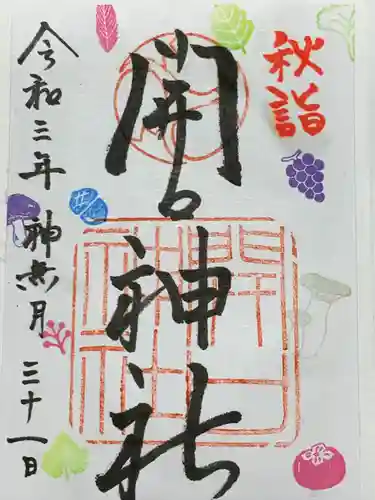 秋詣
開口神社
令和三年神無月三十一日
開口神社